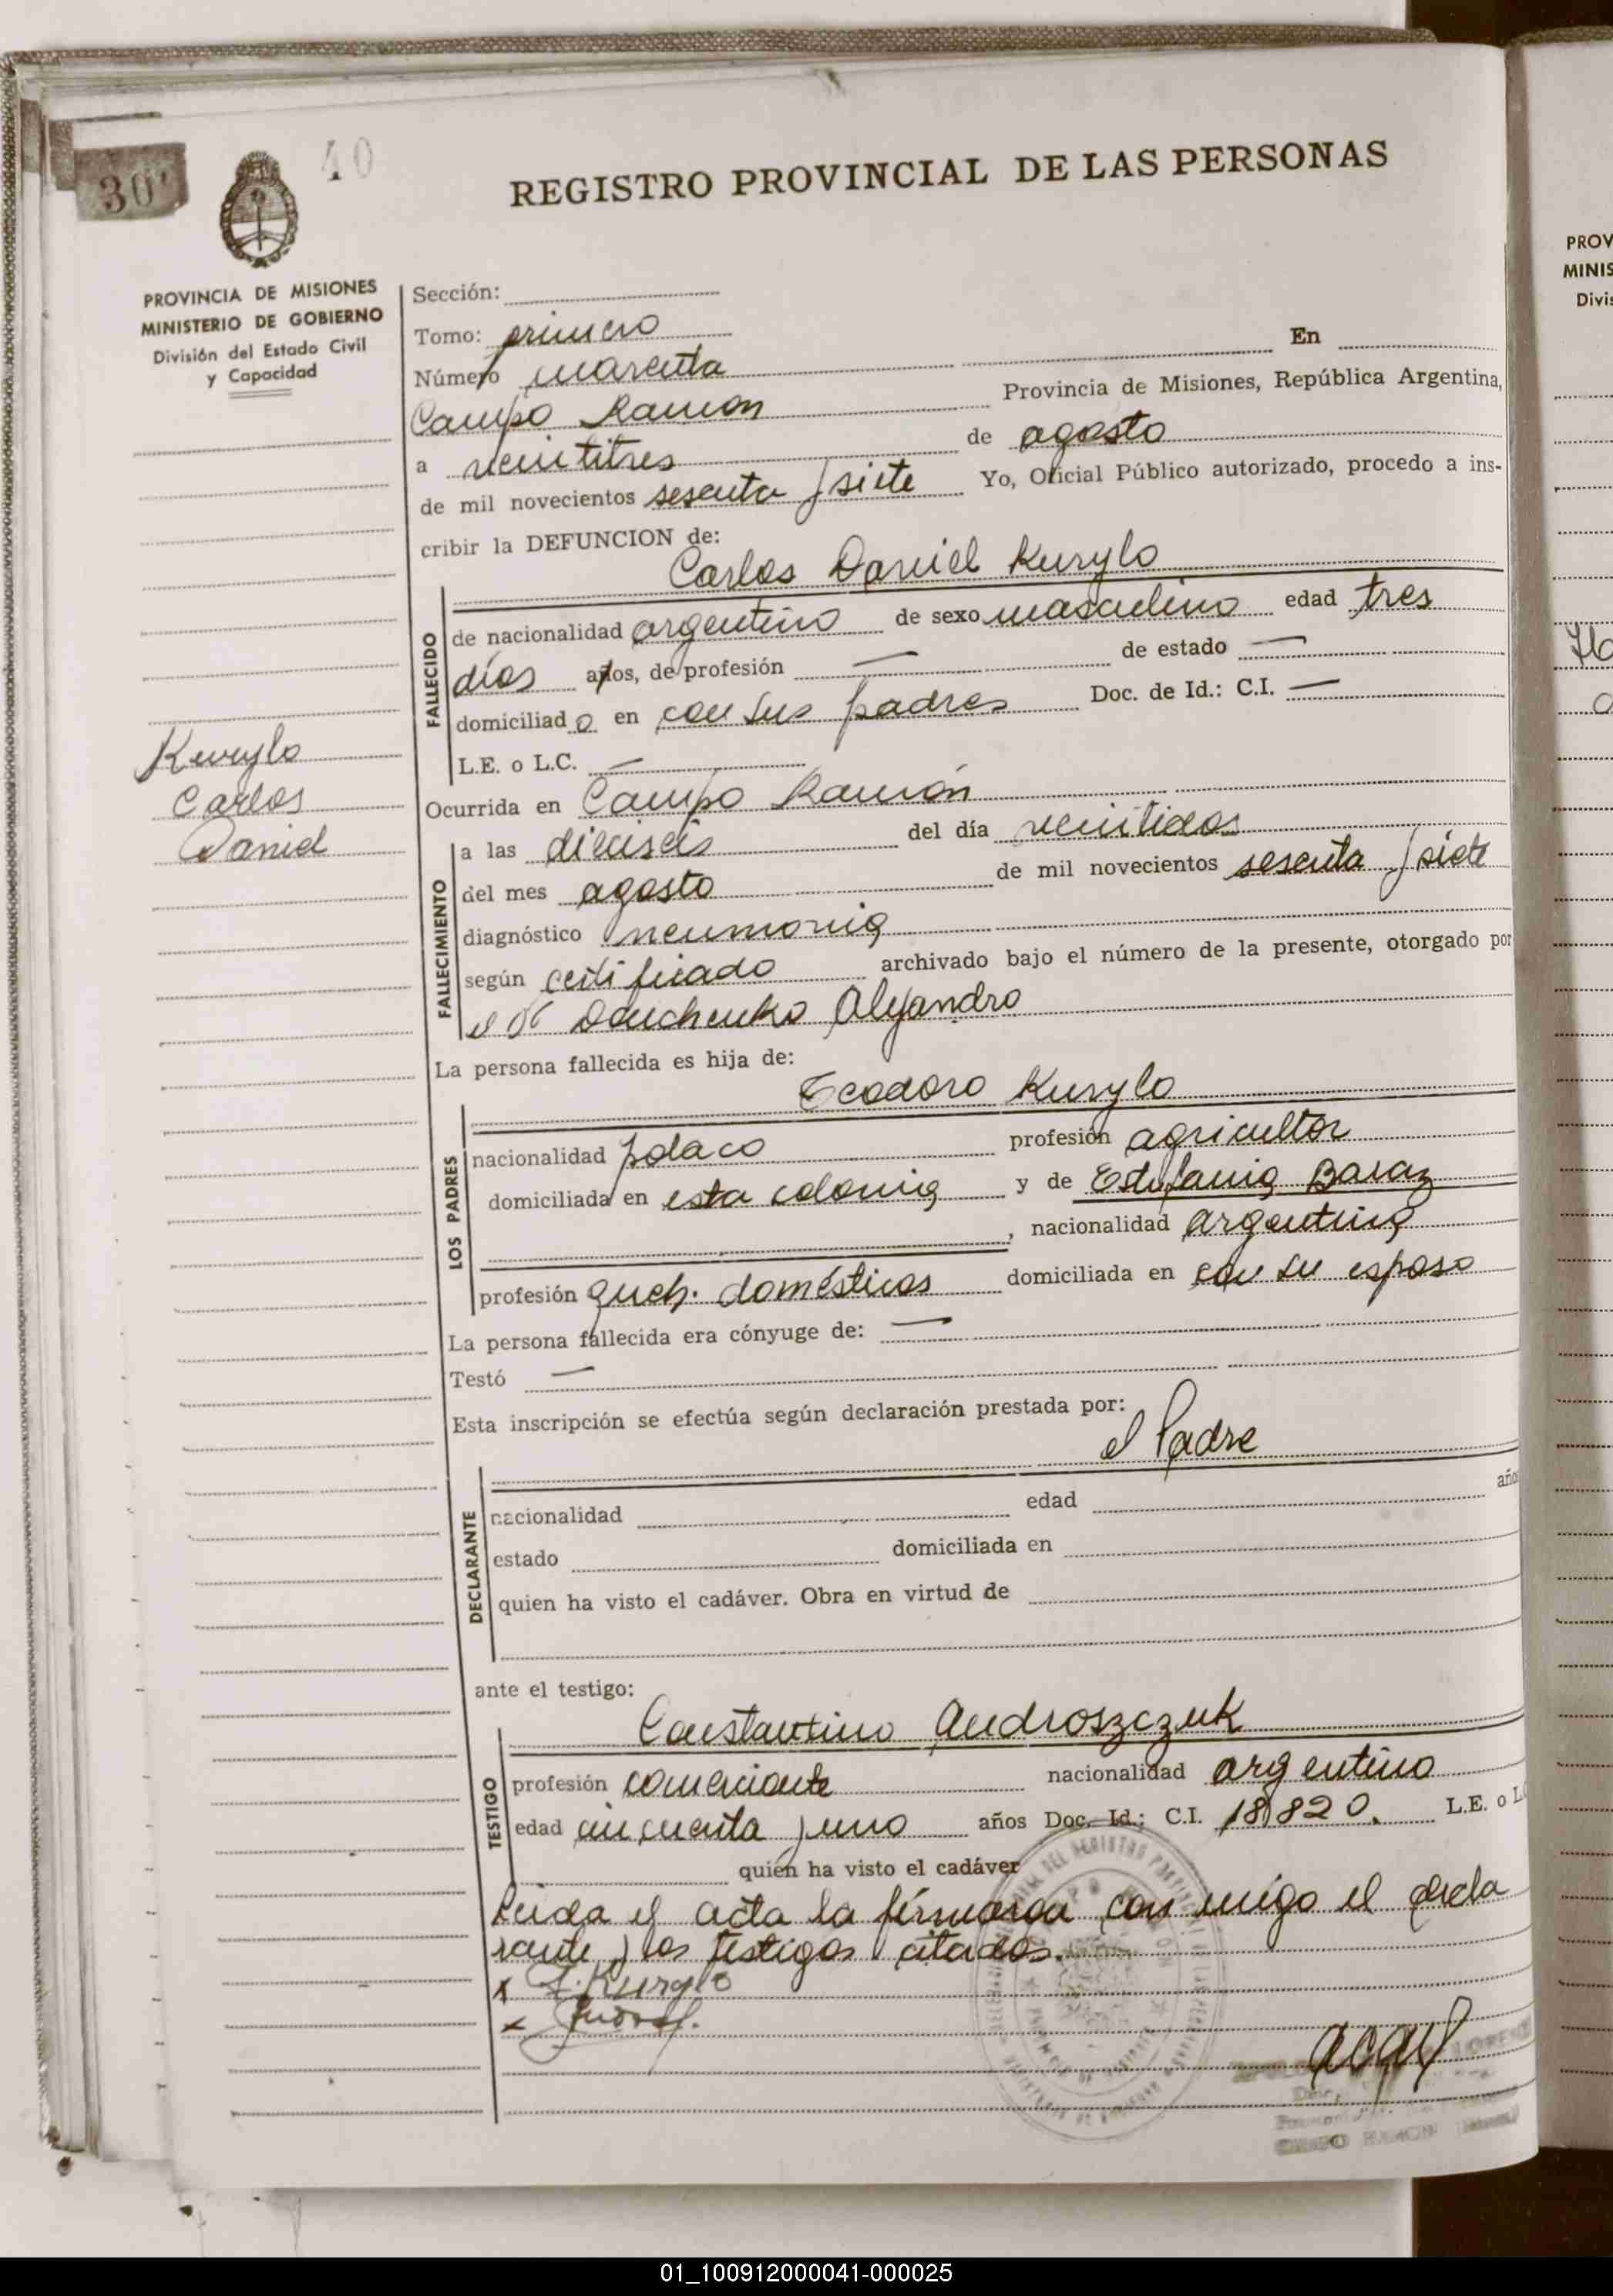 30'
40
REGISTRO PROVINCIAL DE LAS PERSONAS
PROVINCIA DE MISIONES
MINISTERIO DE GOBIERNO
División del Estado Civil
y Capacidad
Kurylo
Carlos
Daniel
Sección:
Tomo: primero
Número cuarenta En
Campo Ramon Provincia de Misiones, República Argentina,
a veintitres de agosto
de mil novecientos sesenta y siete Yo, Oficial Público autorizado, procedo a ins-
cribir la DEFUNCION de:
Carlos Daniel Kurylo
FALLECIDO
de nacionalidad argentino de sexo masculino edad tres
dias años, de profesión — de estado —
domiciliado en con sus padres Doc. de Id.: C.I. —
L.E. o L.C. —
Ocurrida en Campo Ramón
FALLECIMIENTO
a las dieciseis del día veintidos
del mes agosto de mil novecientos sesenta y siete
diagnóstico neumonia
según certificado archivado bajo el número de la presente, otorgado por
el Dr Alejandro
La persona fallecida es hija de:
Teodoro Kurylo
LOS PADRES
nacionalidad polaco profesión agricultor
domiciliada en esta colonia y de Estefania Baraz
, nacionalidad argentina
profesión queh. domésticos domiciliada en con su esposo
La persona fallecida era cónyuge de: —
Testó —
Esta inscripción se efectúa según declaración prestada por:
el Padre
DECLARANTE
nacionalidad edad año
estado domiciliada en
quien ha visto el cadáver. Obra en virtud de
ante el testigo:
Constantino Androszczuk
TESTIGO
profesión comerciante nacionalidad argentino
edad cincuenta y uno años Doc. Id.: C.I. 18.820. L.E. o L
quien ha visto el cadáver
Leida el acta la firmaron con migo el decla
rante y los testigos citados.
x T. Kurylo
x
CAMPO RAMON
PROV
MINIS
Divis
01_100912000041-000025